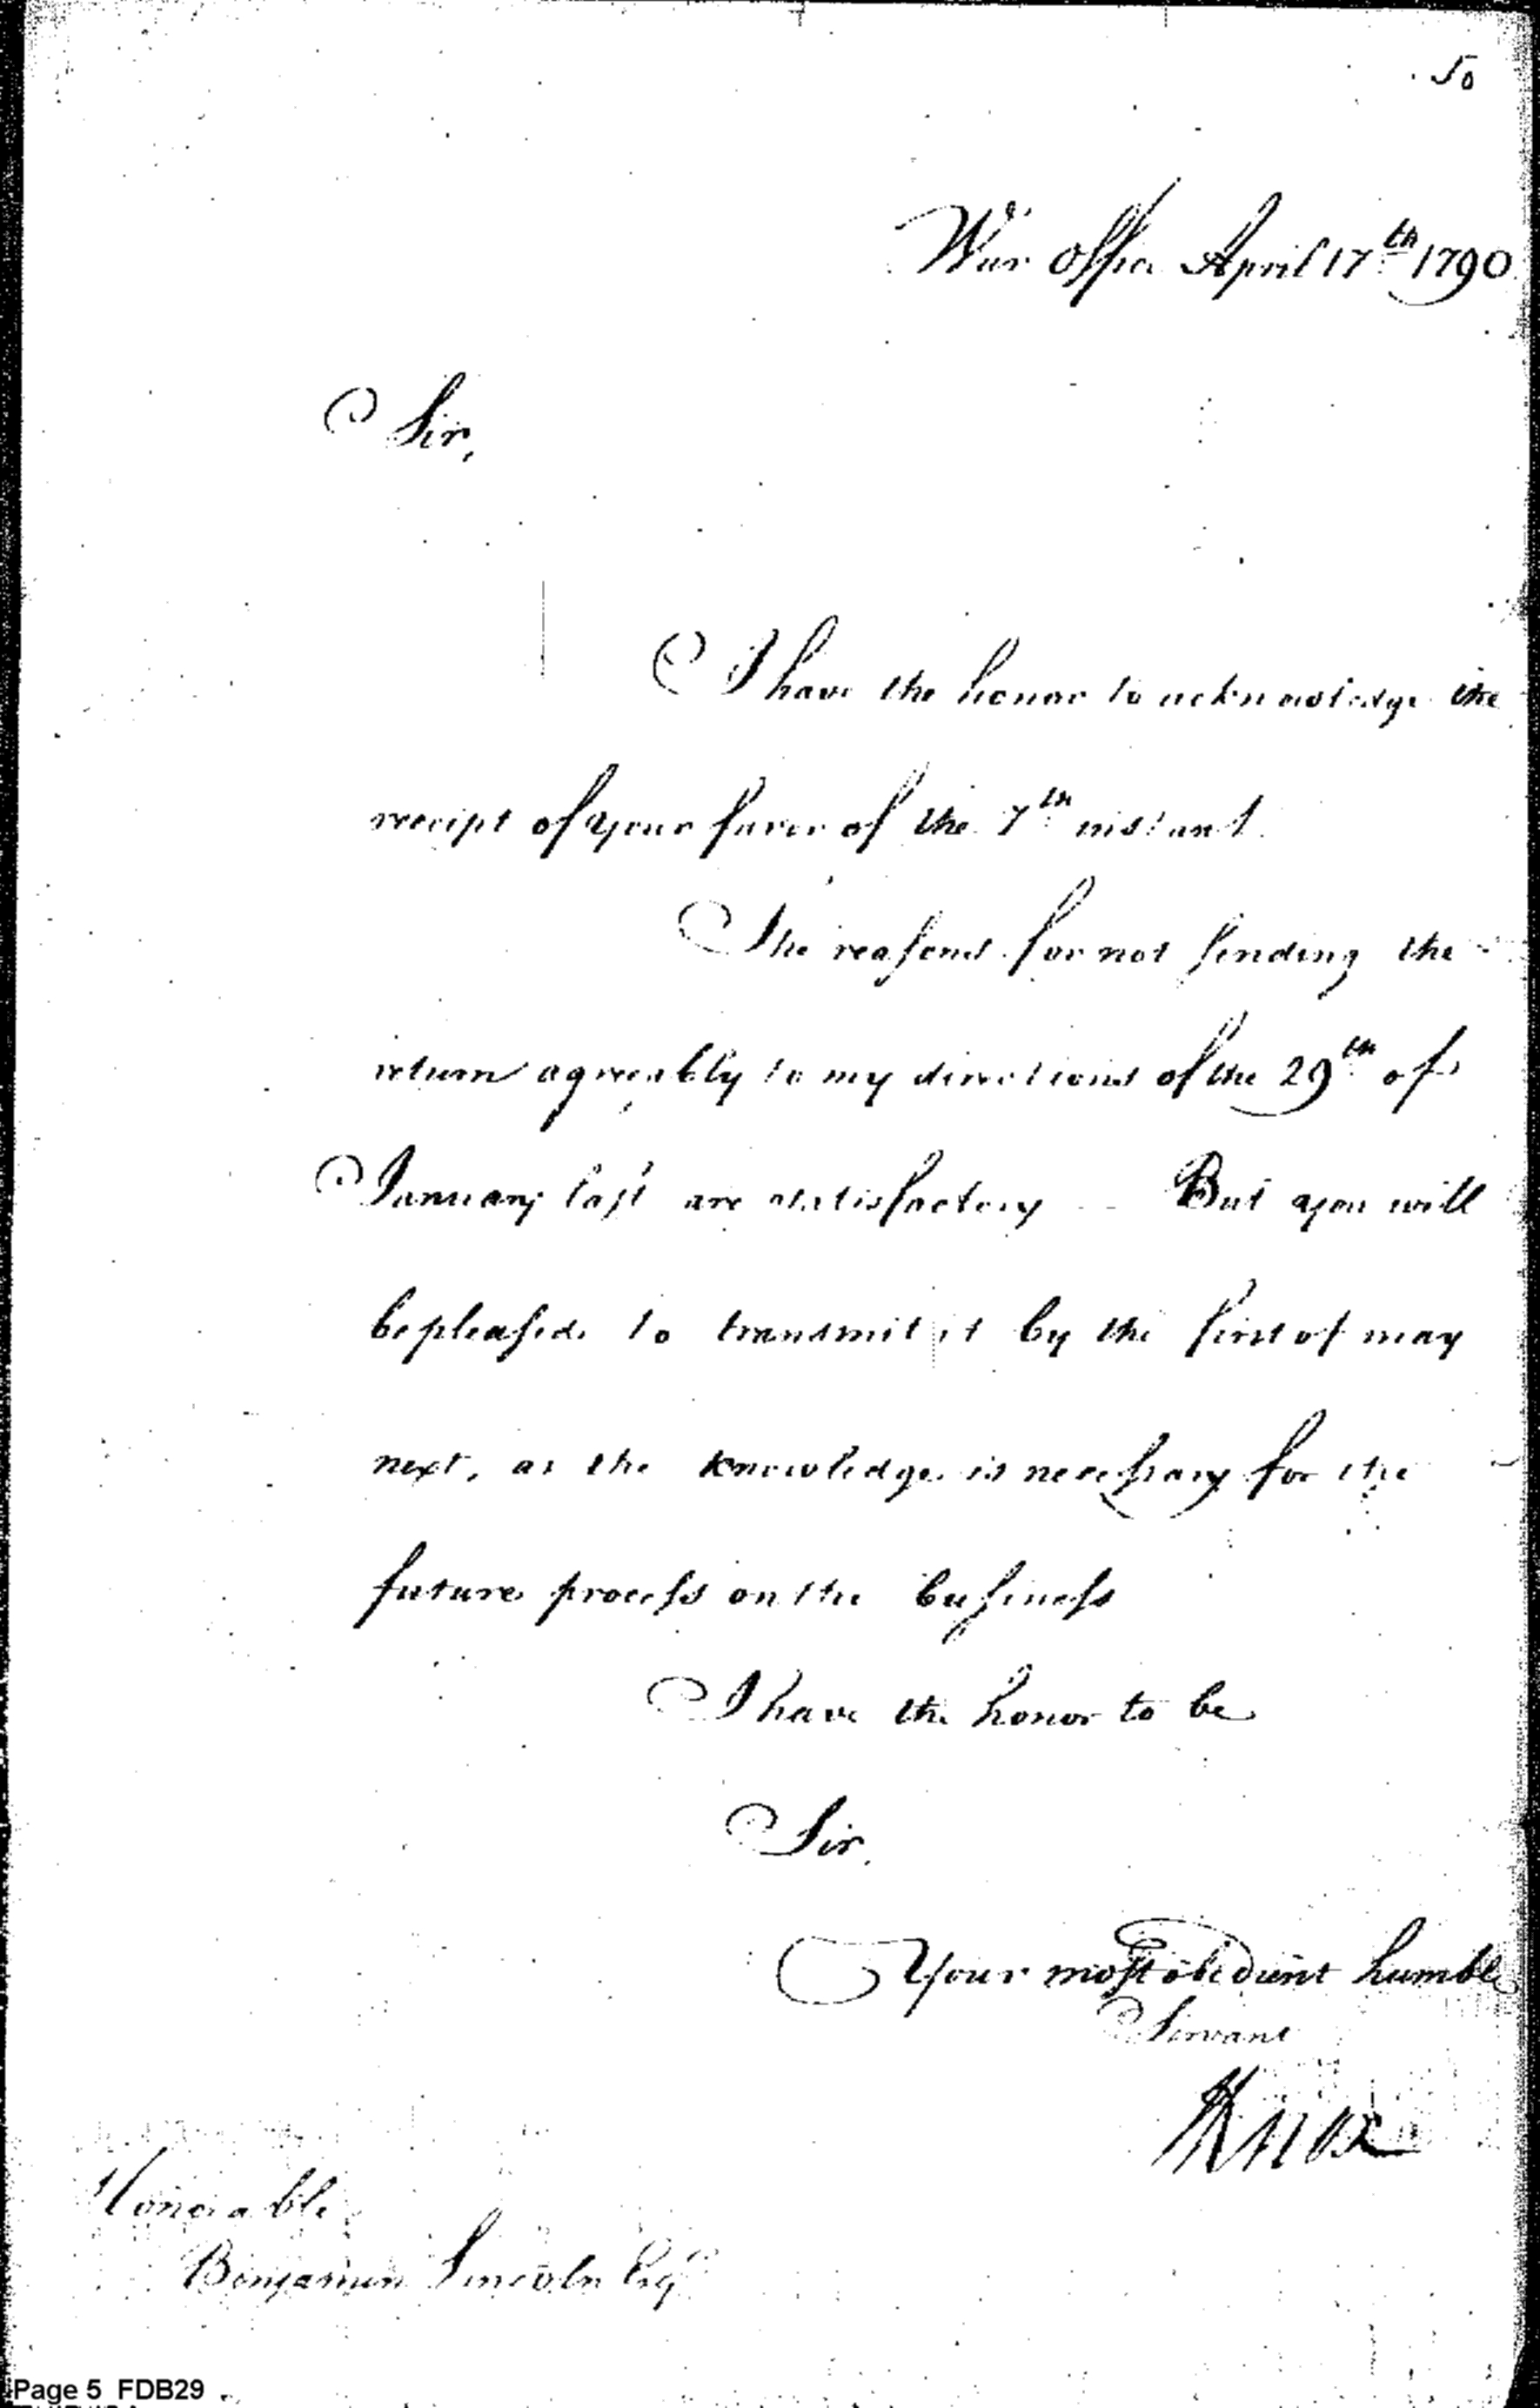 50
War Office April 17th 1790
Sir,
I have the honor to acknowledge the
receipt of your favor of the 7th instant.
The reasons for not sending the
return agreeably to my directions of the 29th of
January last are satisfactory — But you will
be pleased to transmit it by the first of may
next, as the knowledge is necessary for the
future process on the business
I have the honor to be
Sir,
Your most obedient humble
Servant
HKnox
Honorable
Benjamin Lincoln Esqr
Page 5 FDB29